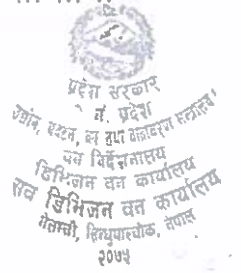 प्रदेश सरकार
प्रदेश
उद्योग, पर्यटन, वन तथा वातावरण मन्त्रालय
वन निर्देशनालय
डिभिजन वन कार्यालय
सव डिभिजन वन कार्यालय
सिन्धुपाल्चोक, नेपाल
२०७५